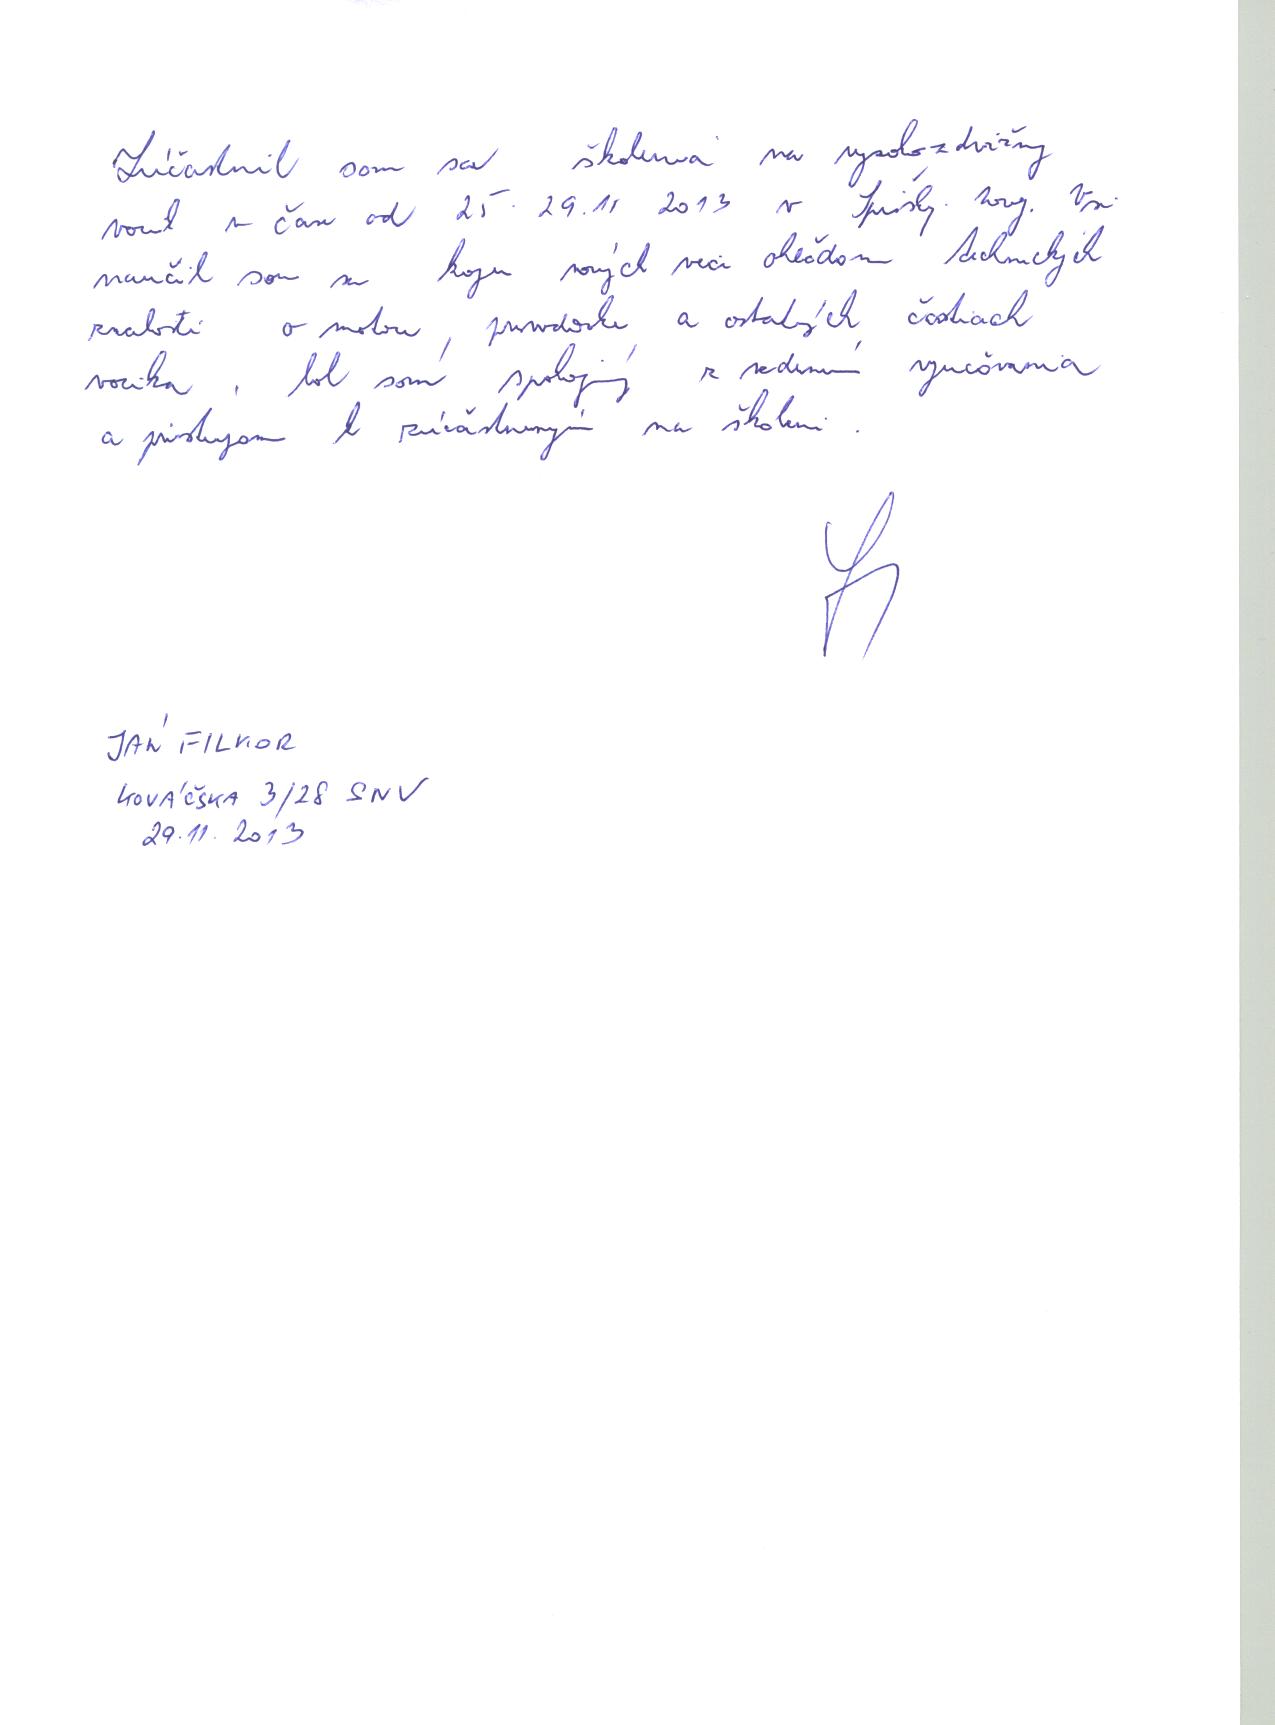 Zúčastnil som sa školenia na vysokozdvižný
vozík v čase od 25. 29.11 2013 v Spišskej novej Vsi.
naučil som sa kopu nových veci ohľadom technických
znalosti o motore, prevodovke a ostatných častiach
vozíka, bol som spokojný z vedením vyučovania
a prístupom k zúčastneným na školení.
JÁN FILKOR
KOVÁČSKA 3/28 SNV
29.11. 2013